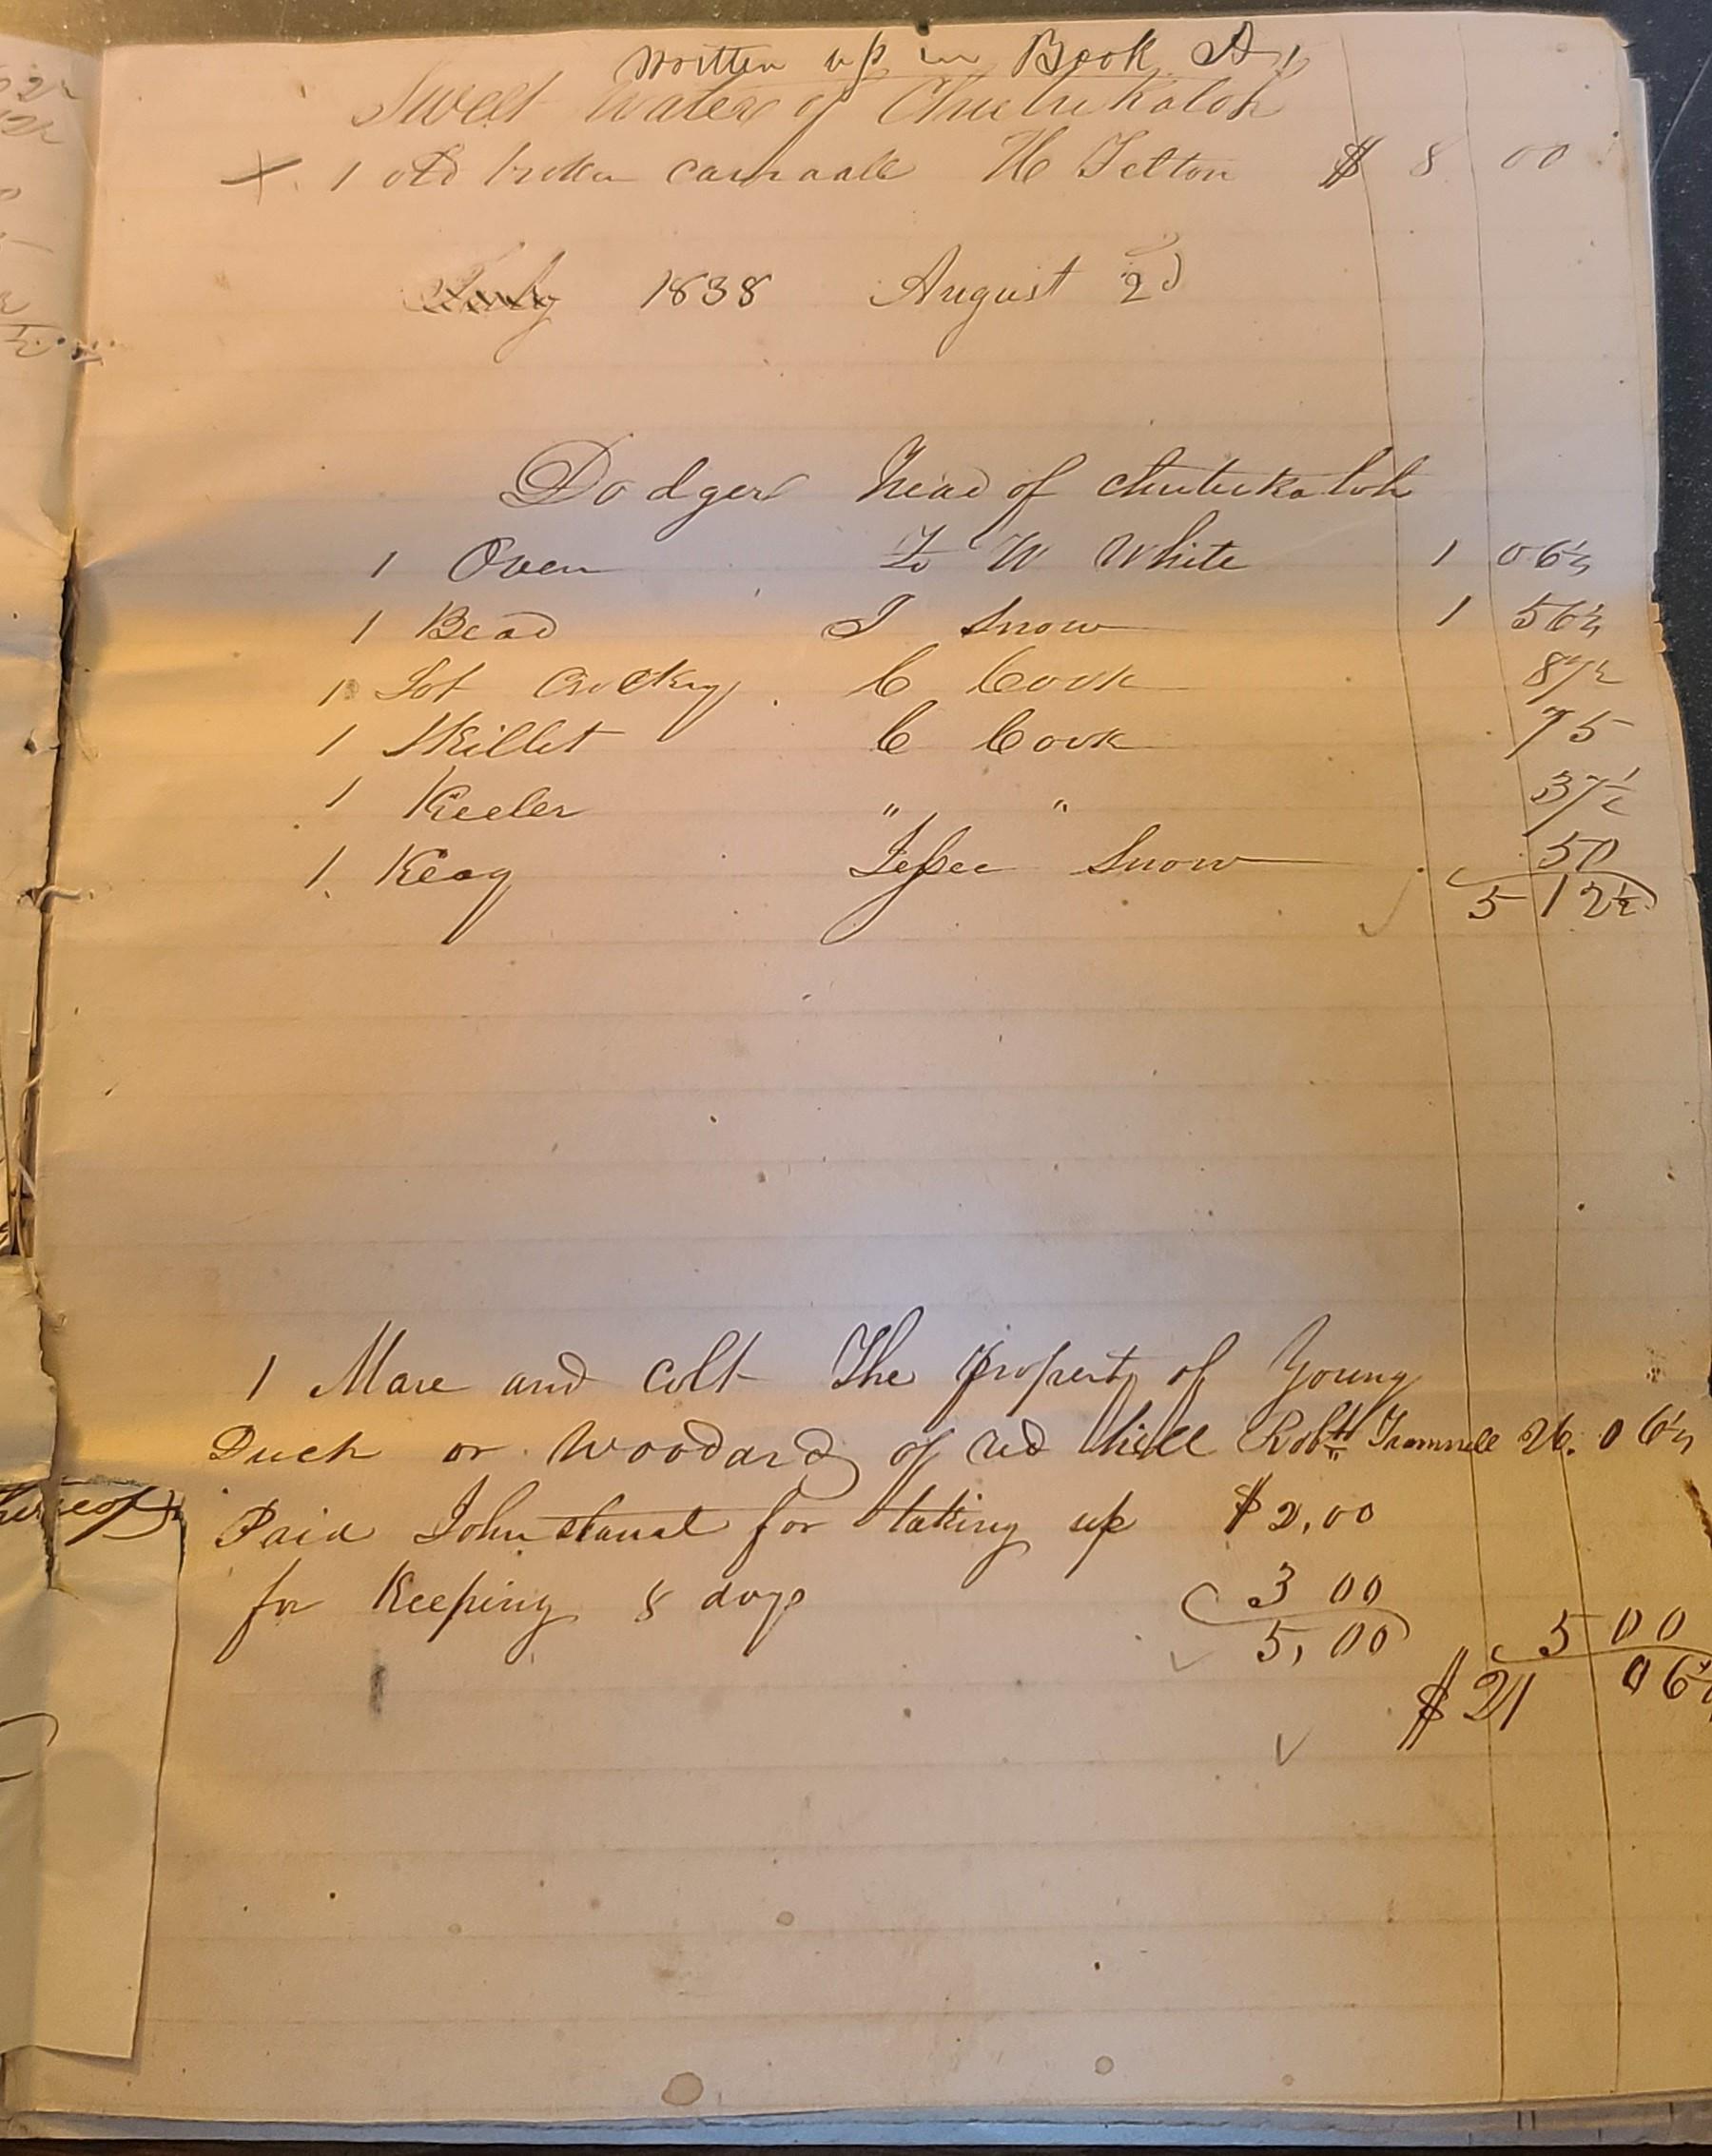 Written up in Book A,
Sweet Water of Chutukaloh
X. 1 old broken carryall H Felton $ 8 00
July 1838 August 2d
Dodger head of Chutukaloh
1 Oven To W White 1 06½
1 Bead J Snow 1 56½
1 Lot Crockery. C Cook 87½
1 Skillet C Cook 75
1 Keeler " " 37½
1. Keag Jessee Snow 50
5 12½
1 Mare and Colt The property of Young
Duck or Woodard of red hill Robtt Trammell 26. 06½
Paid John for taking up $2,00
for Keeping 8 days 3 00
5,00 5 00
$21 06½